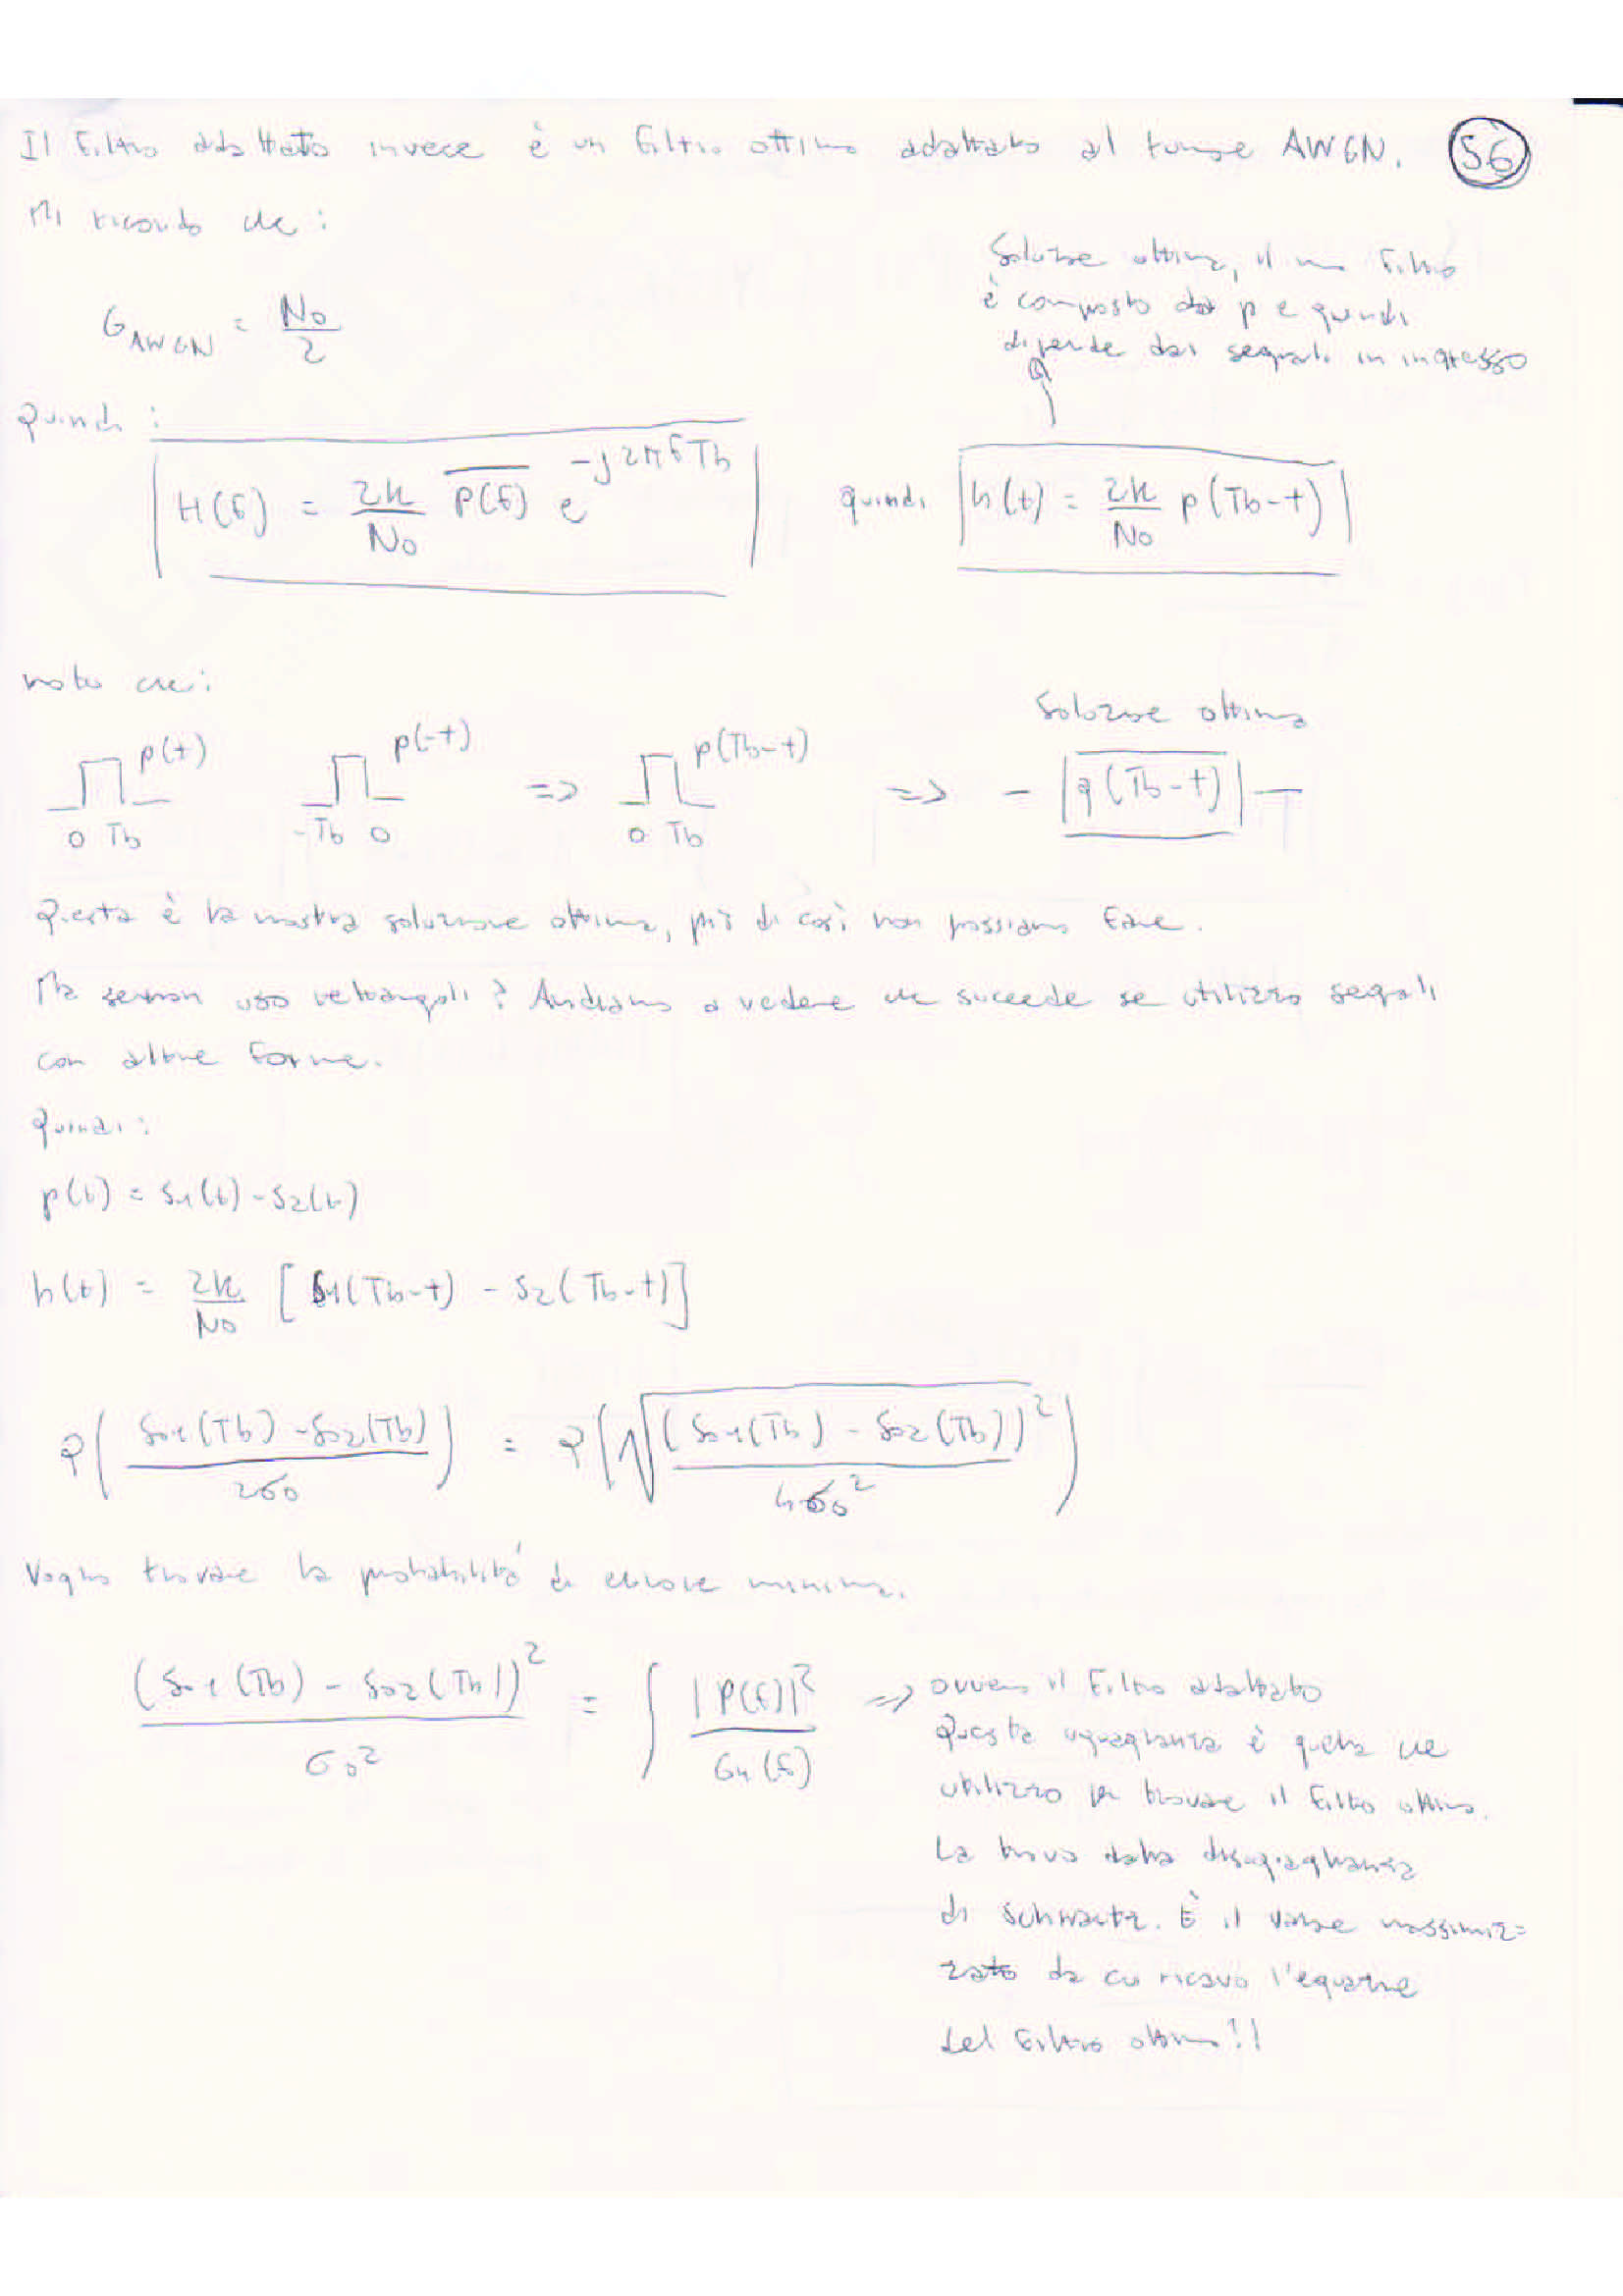 Il filtro adattato invece è un filtro ottimo adattato al rumore AWGN. 56
Mi ricordo che:
G_AWGN = No/2
Soluzione ottima, il mio filtro
è composto da p e quindi
dipende dai segnali in ingresso
quindi:
H(f) = 2k/No \overline{P(f)} e^{-j2πfTb} quindi h(t) = 2k/No p(Tb-t)
noto che:
p(t) p(-t) => p(Tb-t) => Soluzione ottima
p(Tb-t)
0 Tb -Tb 0 0 Tb
Questa è la nostra soluzione ottima, più di così non possiamo fare.
Ma se non uso rettangoli? Andiamo a vedere che succede se utilizzo segnali
con altre forme.
Quindi:
p(t) = S1(t) - S2(t)
h(t) = 2k/No [S1(Tb-t) - S2(Tb-t)]
Q( (So1(Tb) - So2(Tb)) / 2σo ) = Q( √( (So1(Tb) - So2(Tb))² / 4σo² ) )
Voglio trovare la probabilità di errore minima.
(So1(Tb) - So2(Tb))² / σo² = ∫ |P(f)|² / Gn(f) => ovvero il filtro adattato
Questa uguaglianza è quella che
utilizzo per trovare il filtro ottimo.
La trovo dalla disuguaglianza
di Schwartz. È il valore massimiz-
zato da cui ricavo l'equazione
del filtro ottimo!!